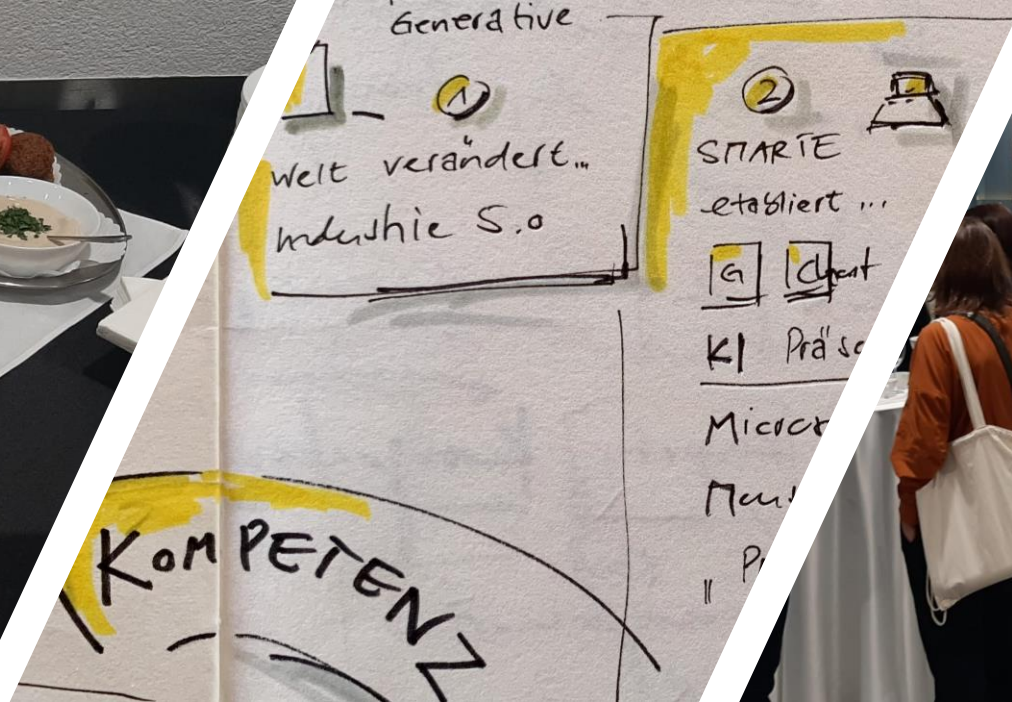 Generative
1
Welt verändert...
Industrie 5.0
2
SMARTE
etabliert ...
G Client
KI Prä
KOMPETENZ